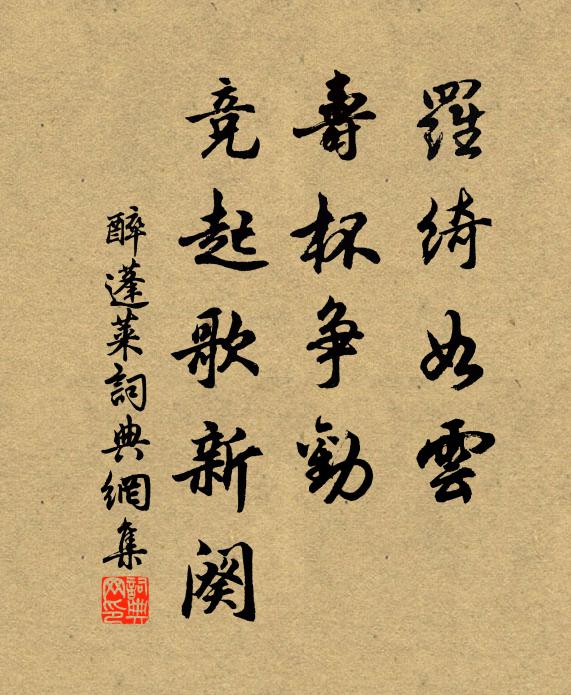 羅綺如雲
壽杯争勸
竞起歌新闋
醉蓬萊詞典網集
詞典网印